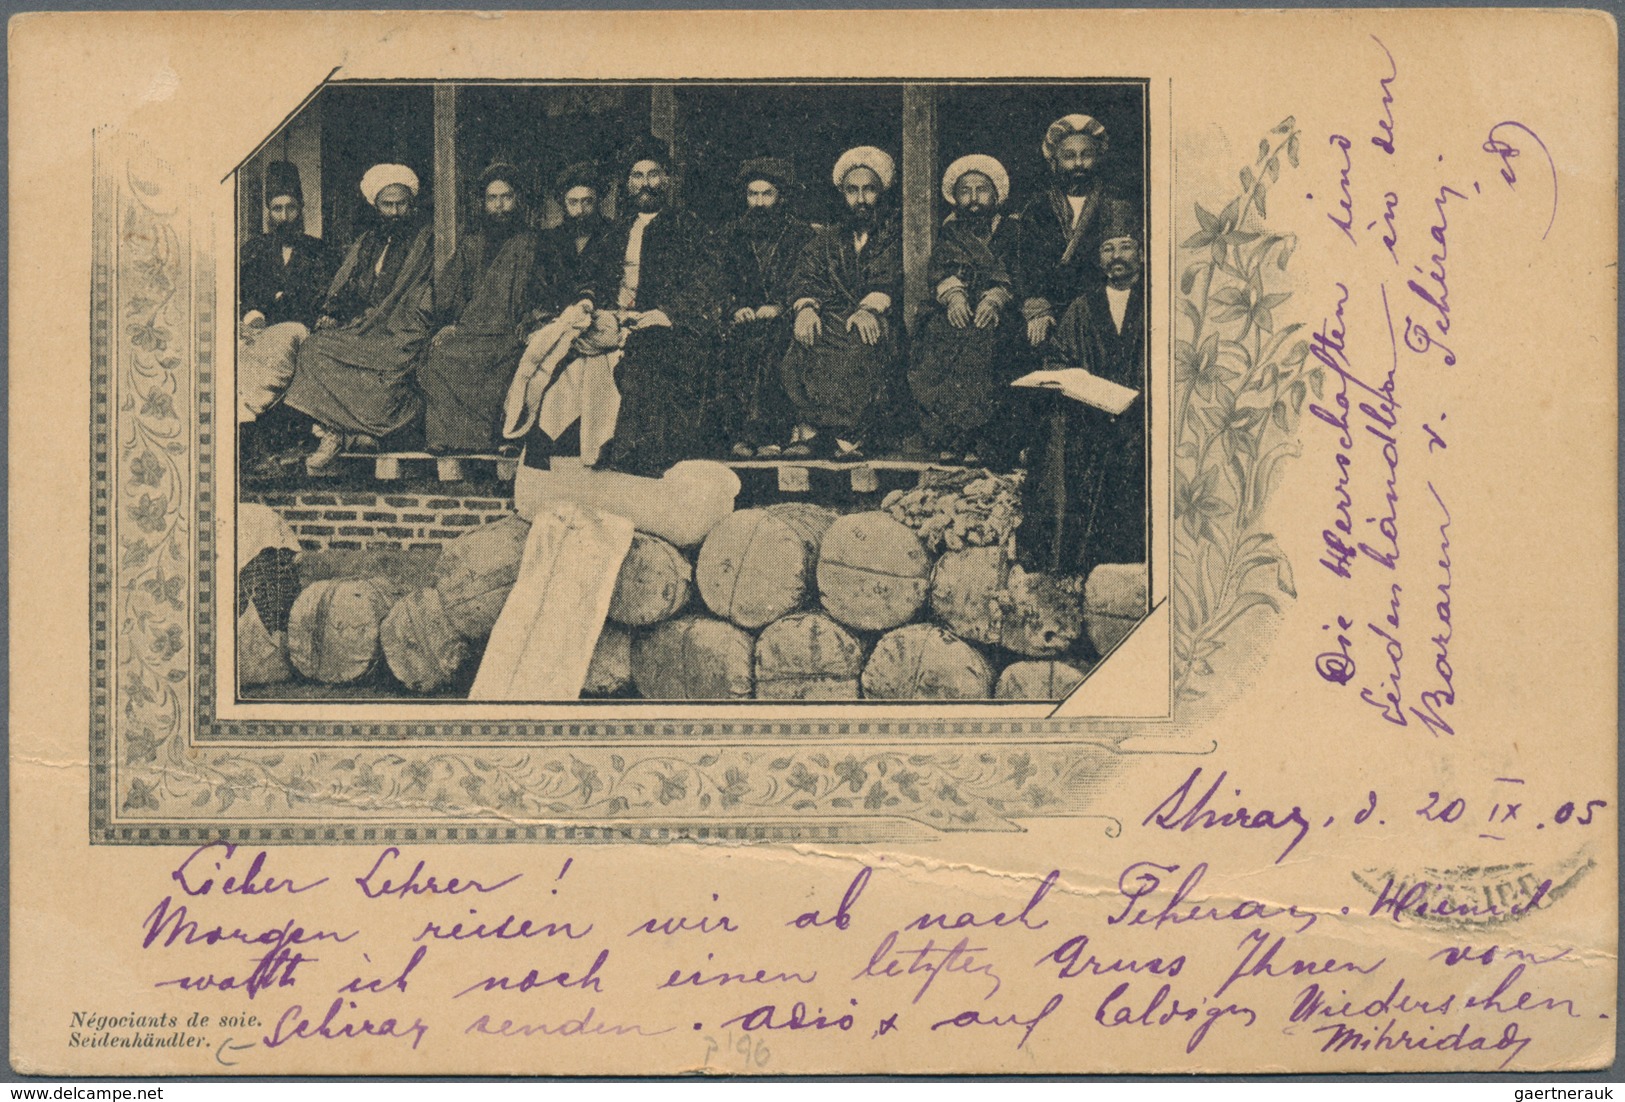 Die Herrschaften sind
Seidenhändler in den
Bazaren v. Téhéran
Shiraz, d. 20 IX. 05
Lieber Lehrer!
Morgen reisen wir ab nach Teheran. Hiemit
wollt ich noch einen letzten Gruss Ihnen von
Schiraz senden. Adió & auf baldiges Wiedersehen.
Mihridads
Négociants de soie.
Seidenhändler.
P'96
delcampe.net
gaertnerauk